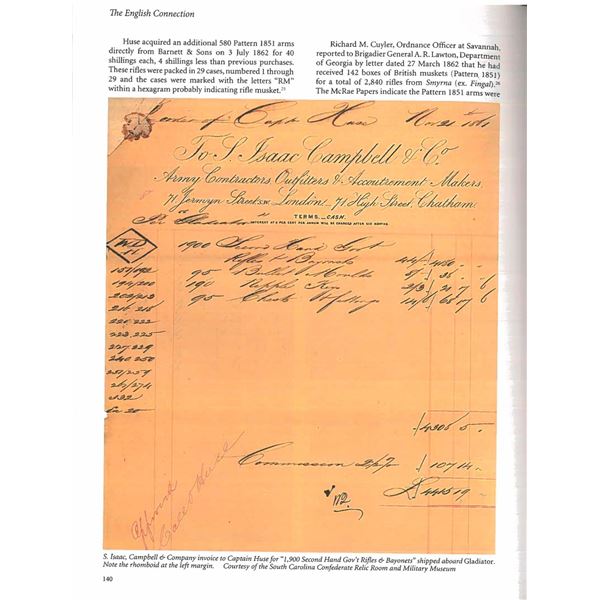 The English Connection
Huse acquired an additional 580 Pattern 1851 arms
directly from Barnett & Sons on 3 July 1862 for 40
shillings each, 4 shillings less than previous purchases.
These rifles were packed in 29 cases, numbered 1 through
29 and the cases were marked with the letters "RM"
within a hexagram probably indicating rifle musket.²⁵
Richard M. Cuyler, Ordnance Officer at Savannah,
reported to Brigadier General A. R. Lawton, Department
of Georgia by letter dated 27 March 1862 that he had
received 142 boxes of British muskets (Pattern 1851)
for a total of 2,840 rifles from Smyrna (ex. Fingal).²⁶
The McRae Papers indicate the Pattern 1851 arms were
order of Capt Huse Nov 21 1861
To S. Isaac Campbell & Co.
Army Contractors, Outfitters & Accoutrement Makers,
71, Jermyn Street, S.W. London. 71 High Street, Chatham.
TERMS. CASH.
INTEREST AT 5 PER CENT PER ANNUM WILL BE CHARGED AFTER SIX MONTHS.
Per Gladiator
1900 Second Hand Govt
Rifles & Bayonets 44/ 4180 " "
157/192 95 Bullet Moulds
194/200 190 Nipple Keys 2/3 21 7 6
203/212 95 Chests & fittings 14/6 68 17 6
216 218
220,222
223,225
227,229
240,250
Commission 2½% 107 14
£4415 19
Approved
Caleb Huse
S. Isaac, Campbell & Company invoice to Captain Huse for "1,900 Second Hand Gov't Rifles & Bayonets" shipped aboard Gladiator.
Note the rhomboid at the left margin. Courtesy of the South Carolina Confederate Relic Room and Military Museum
140